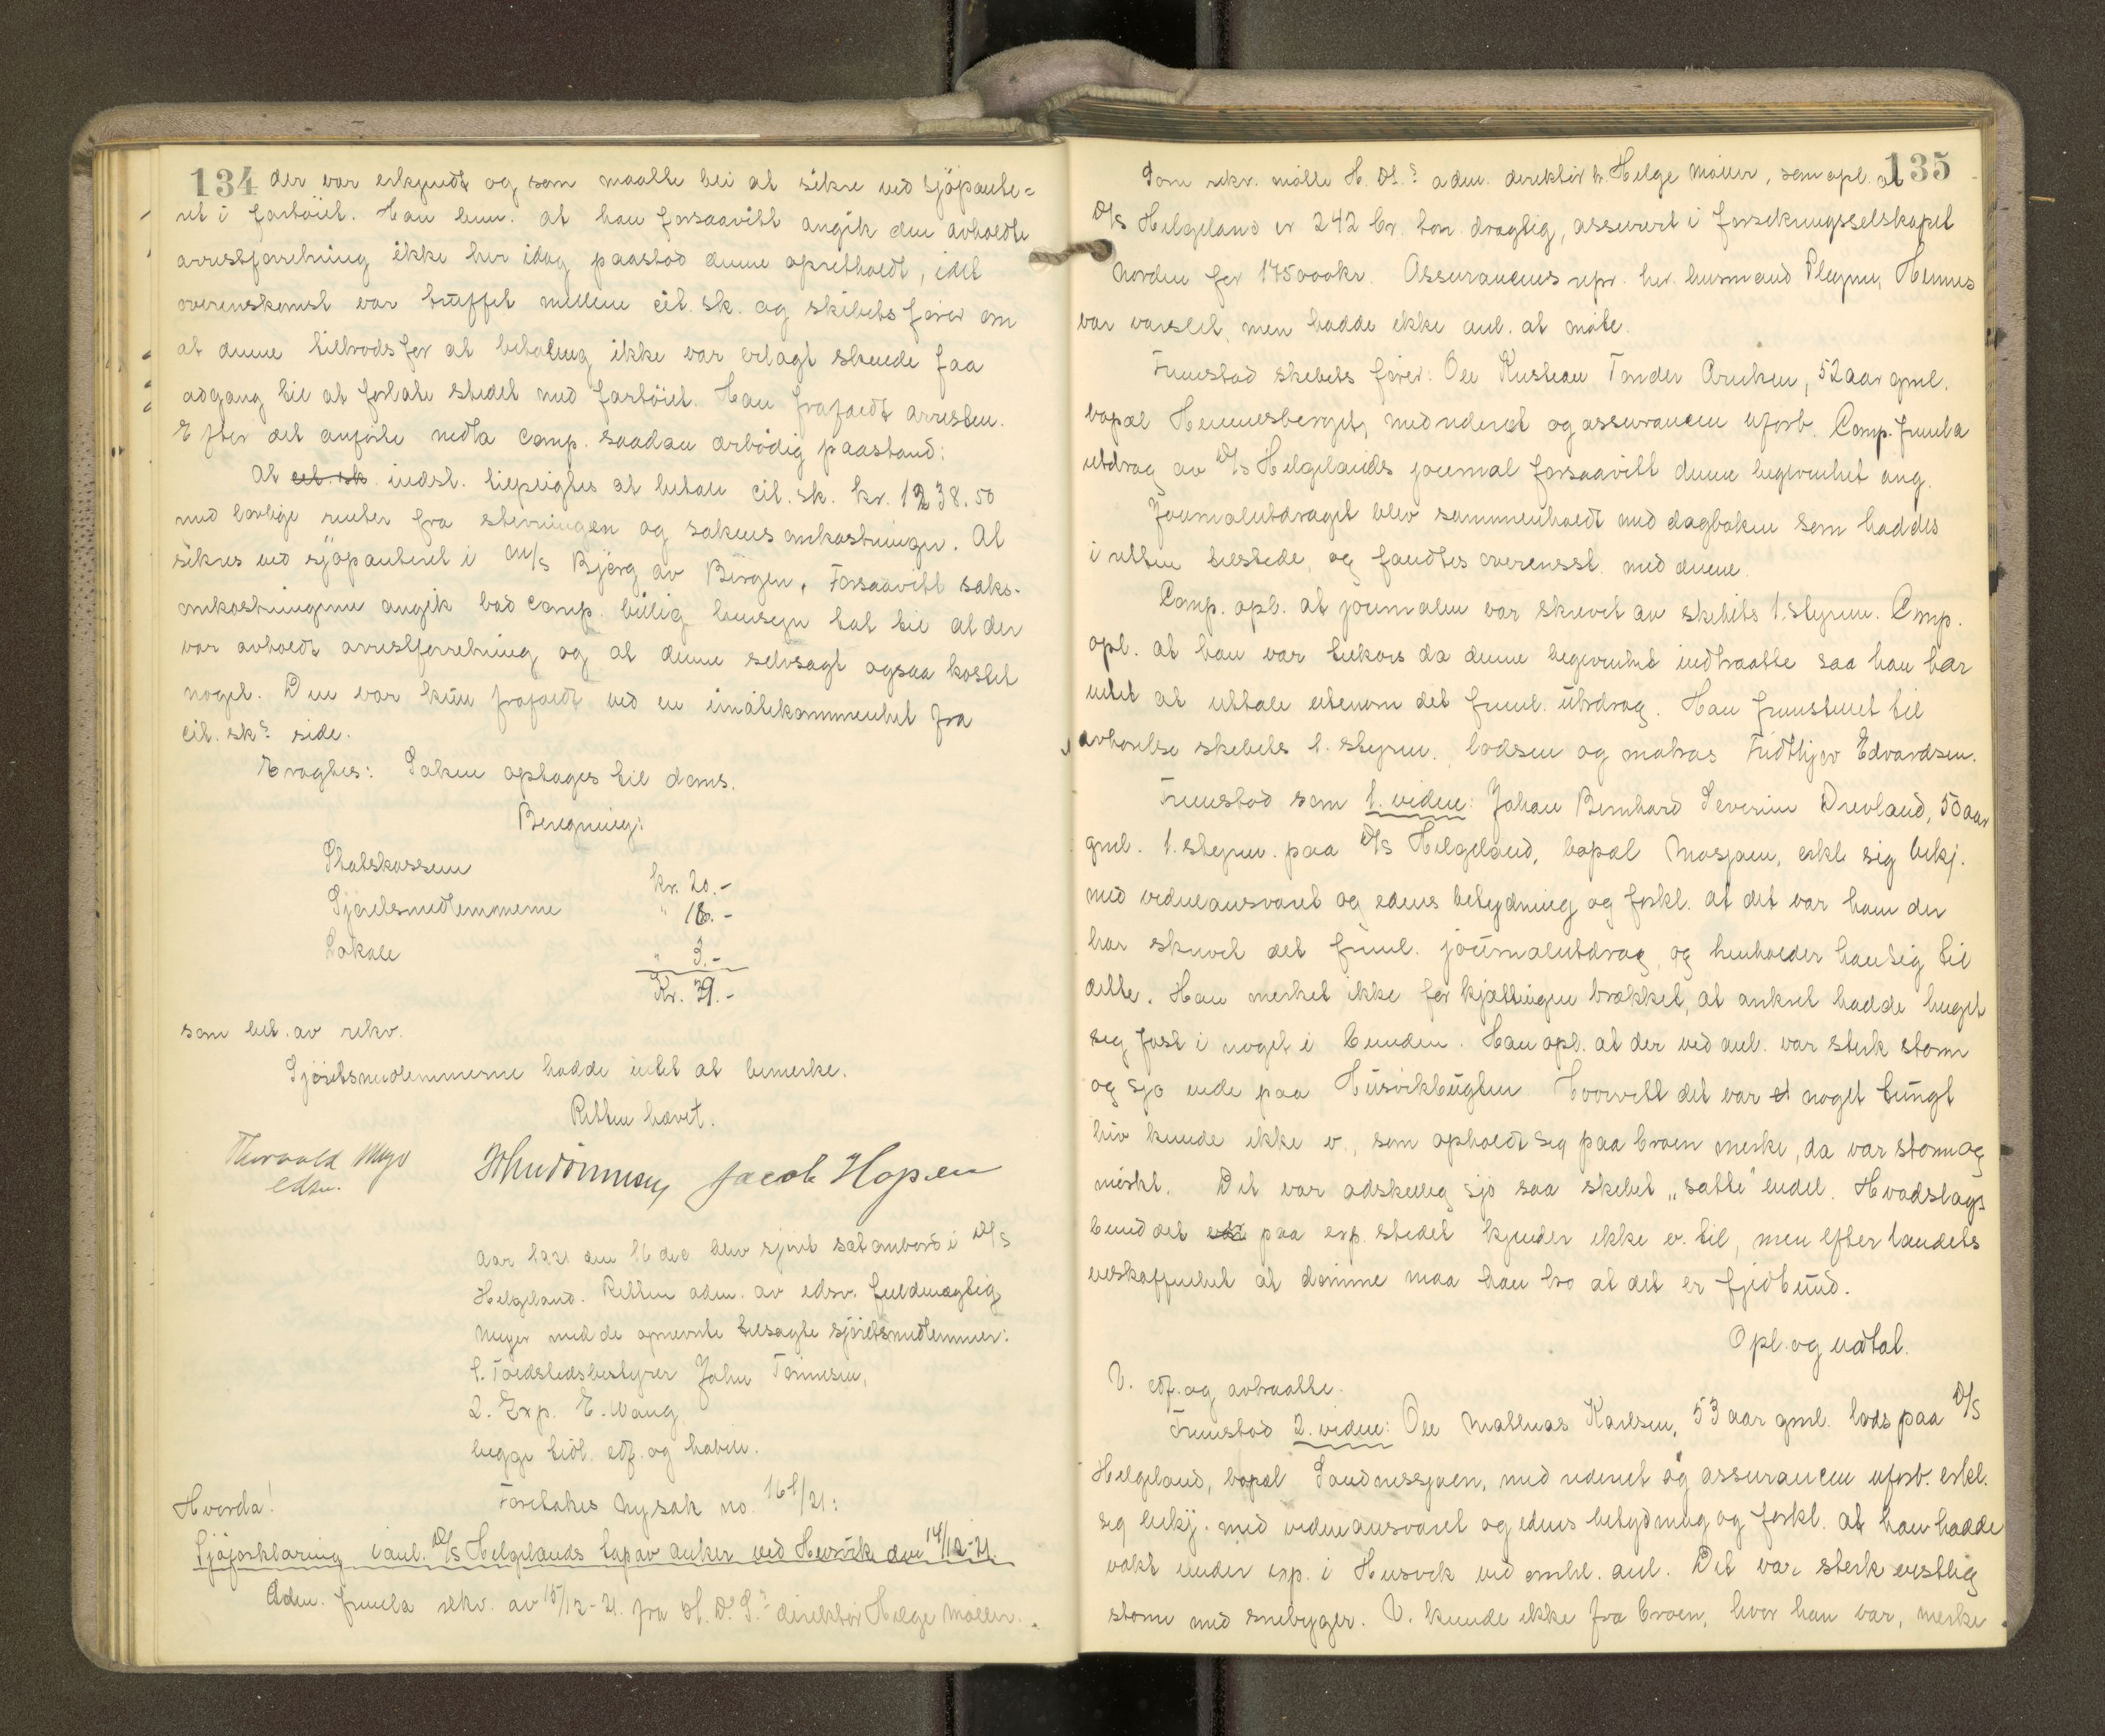 134 der var erkjendt og som maatte bli at sikre ved sjöpante=
ret i fartöiet. Han bem. at han forsaavitt angik den avholdte
arrestforretning ikke her idag paastod denne opretholdt, idet
overenskomst var truffet mellem cit. sk. og skibets fører om
at denne tiltrods for at betaling ikke var erlagt skulde faa
adgang til at forlate stedet med fartöiet. Han frafaldt arresten.
Efter det anförte nedla comp. saadan ærbödig paastand:
At indst. tilpligtes at betale cit. sk. kr. 1238.50
med lovlige renter fra stevningen og sakens omkostninger. At
sikres ved sjöpanteret i M/S Bjørg av Bergen. Forsaavitt saks-
omkostningerne angik bad comp. billig hensyn tat til at der
var avholdt arrestforretning og at denne selvsagt ogsaa kostet
noget. Den var kun frafaldt ved en imötekommenhet fra
cit. sks side.
Eragtes: Saken optages til doms.
Beregning:
Statskassen kr. 20.-
Sjöretsmedlemmerne " 16.-
Lokale " 3.-
Kr. 39.-
som bet. av rekv.
Sjöretsmedlemmerne hadde intet at bemerke.
Retten hævet.
Thorvald Meyer
edsv.
Jacob Hopen
Aar 1921 den 16 des. blev sjöret sat ombord i D/S
Helgeland. Retten adm. av edsv. fuldmægtig
Meyer med de opnevnte tilsagte sjöretsmedlemmer:
1. Toldstedsbestyrer John Tönnesen,
2. Exp. E. Wang
begge tidl. edf. og habile.
Hvorda!
Foretokes ny sak no. 161/21:
Sjöforklaring i anl. D/S Helgelands tap av anker ved Husvik den 14/12-21.
Adm. freml. rekv. av 15/12-21. fra H. D. S. direktör Helge Möller.
135
Som rekv. mötte H. D. s adm. direktör hr. Helge Möller, som opl. at
D/S Helgeland er 242 br. ton. drægtig, assurert i forsikringsselskapet
Norden for 175000 kr. Assurancens repr. her. husmand Hemnes
var varslet, men hadde ikke anl. at møte.
Fremstod skibets fører: Ole Kristian Tonder Arntzen, 52 aar gml.
bopæl Hemnesberget, med rederiet og assurancen uforb. Comp. fremla
utdrag av D/S Helgelands journal forsaavitt denne begivenhet ang.
Journalutdraget blev sammenholdt med dagboken som haddes
i retten tilstede, og fandtes overensst. med denne.
Comp. opl. at journalen var skrevet av skibets 1. styrm. Comp.
opl. at han var tilkois da denne begivenhet indtraatte saa han har
intet at uttale utenom det freml. utdrag. Han fremstillet til
avhørelse skibets 1. styrm., lodsen og matros Fridthjov Edvardsen.
Fremstod som 1. vidne: Johan Bernhard Severin Drevland, 50 aar
gml. 1. styrm. paa D/S Helgeland, bopæl Mosjøen, erkl. sig bekj.
med vidneansvaret og edens betydning og forkl. at det var ham der
har skrevet det freml. journalutdrag, og henholder han sig til
dette. Han merket ikke før kjættingen brækket, at ankret hadde huget
seg fast i noget i bunden. Han opl. at der ved anl. var sterk storm
og sjø inde paa Husvikbugten. Hvorvitt det var noget tungt
hiv kunde ikke v., som opholdt sig paa broen merke, da var storm og
mörkt. Det var adskillig sjø saa skibet "satte" endel. Hvadslags
bund det paa exp. stedet kjender ikke v. til, men efter landets
beskaffenhet at dømme maa han tro at det er fjeldbund.
Opl. og vedtat.
V. edf. og avtraatte.
Fremstod 2. vidne: Ole Mathias Karlsen, 53 aar gml. lods paa D/S
Helgeland, bopæl Sandnessjøen, med rederiet og assurancen uforb. erkl.
sig bekj. med vidneansvaret og edens betydning og forkl. at han hadde
vakt under exp. i Husvik ved omhl. anl. Det var sterk vestlig
storm med snebyger. V. kunde ikke fra broen, hvor han var, merke